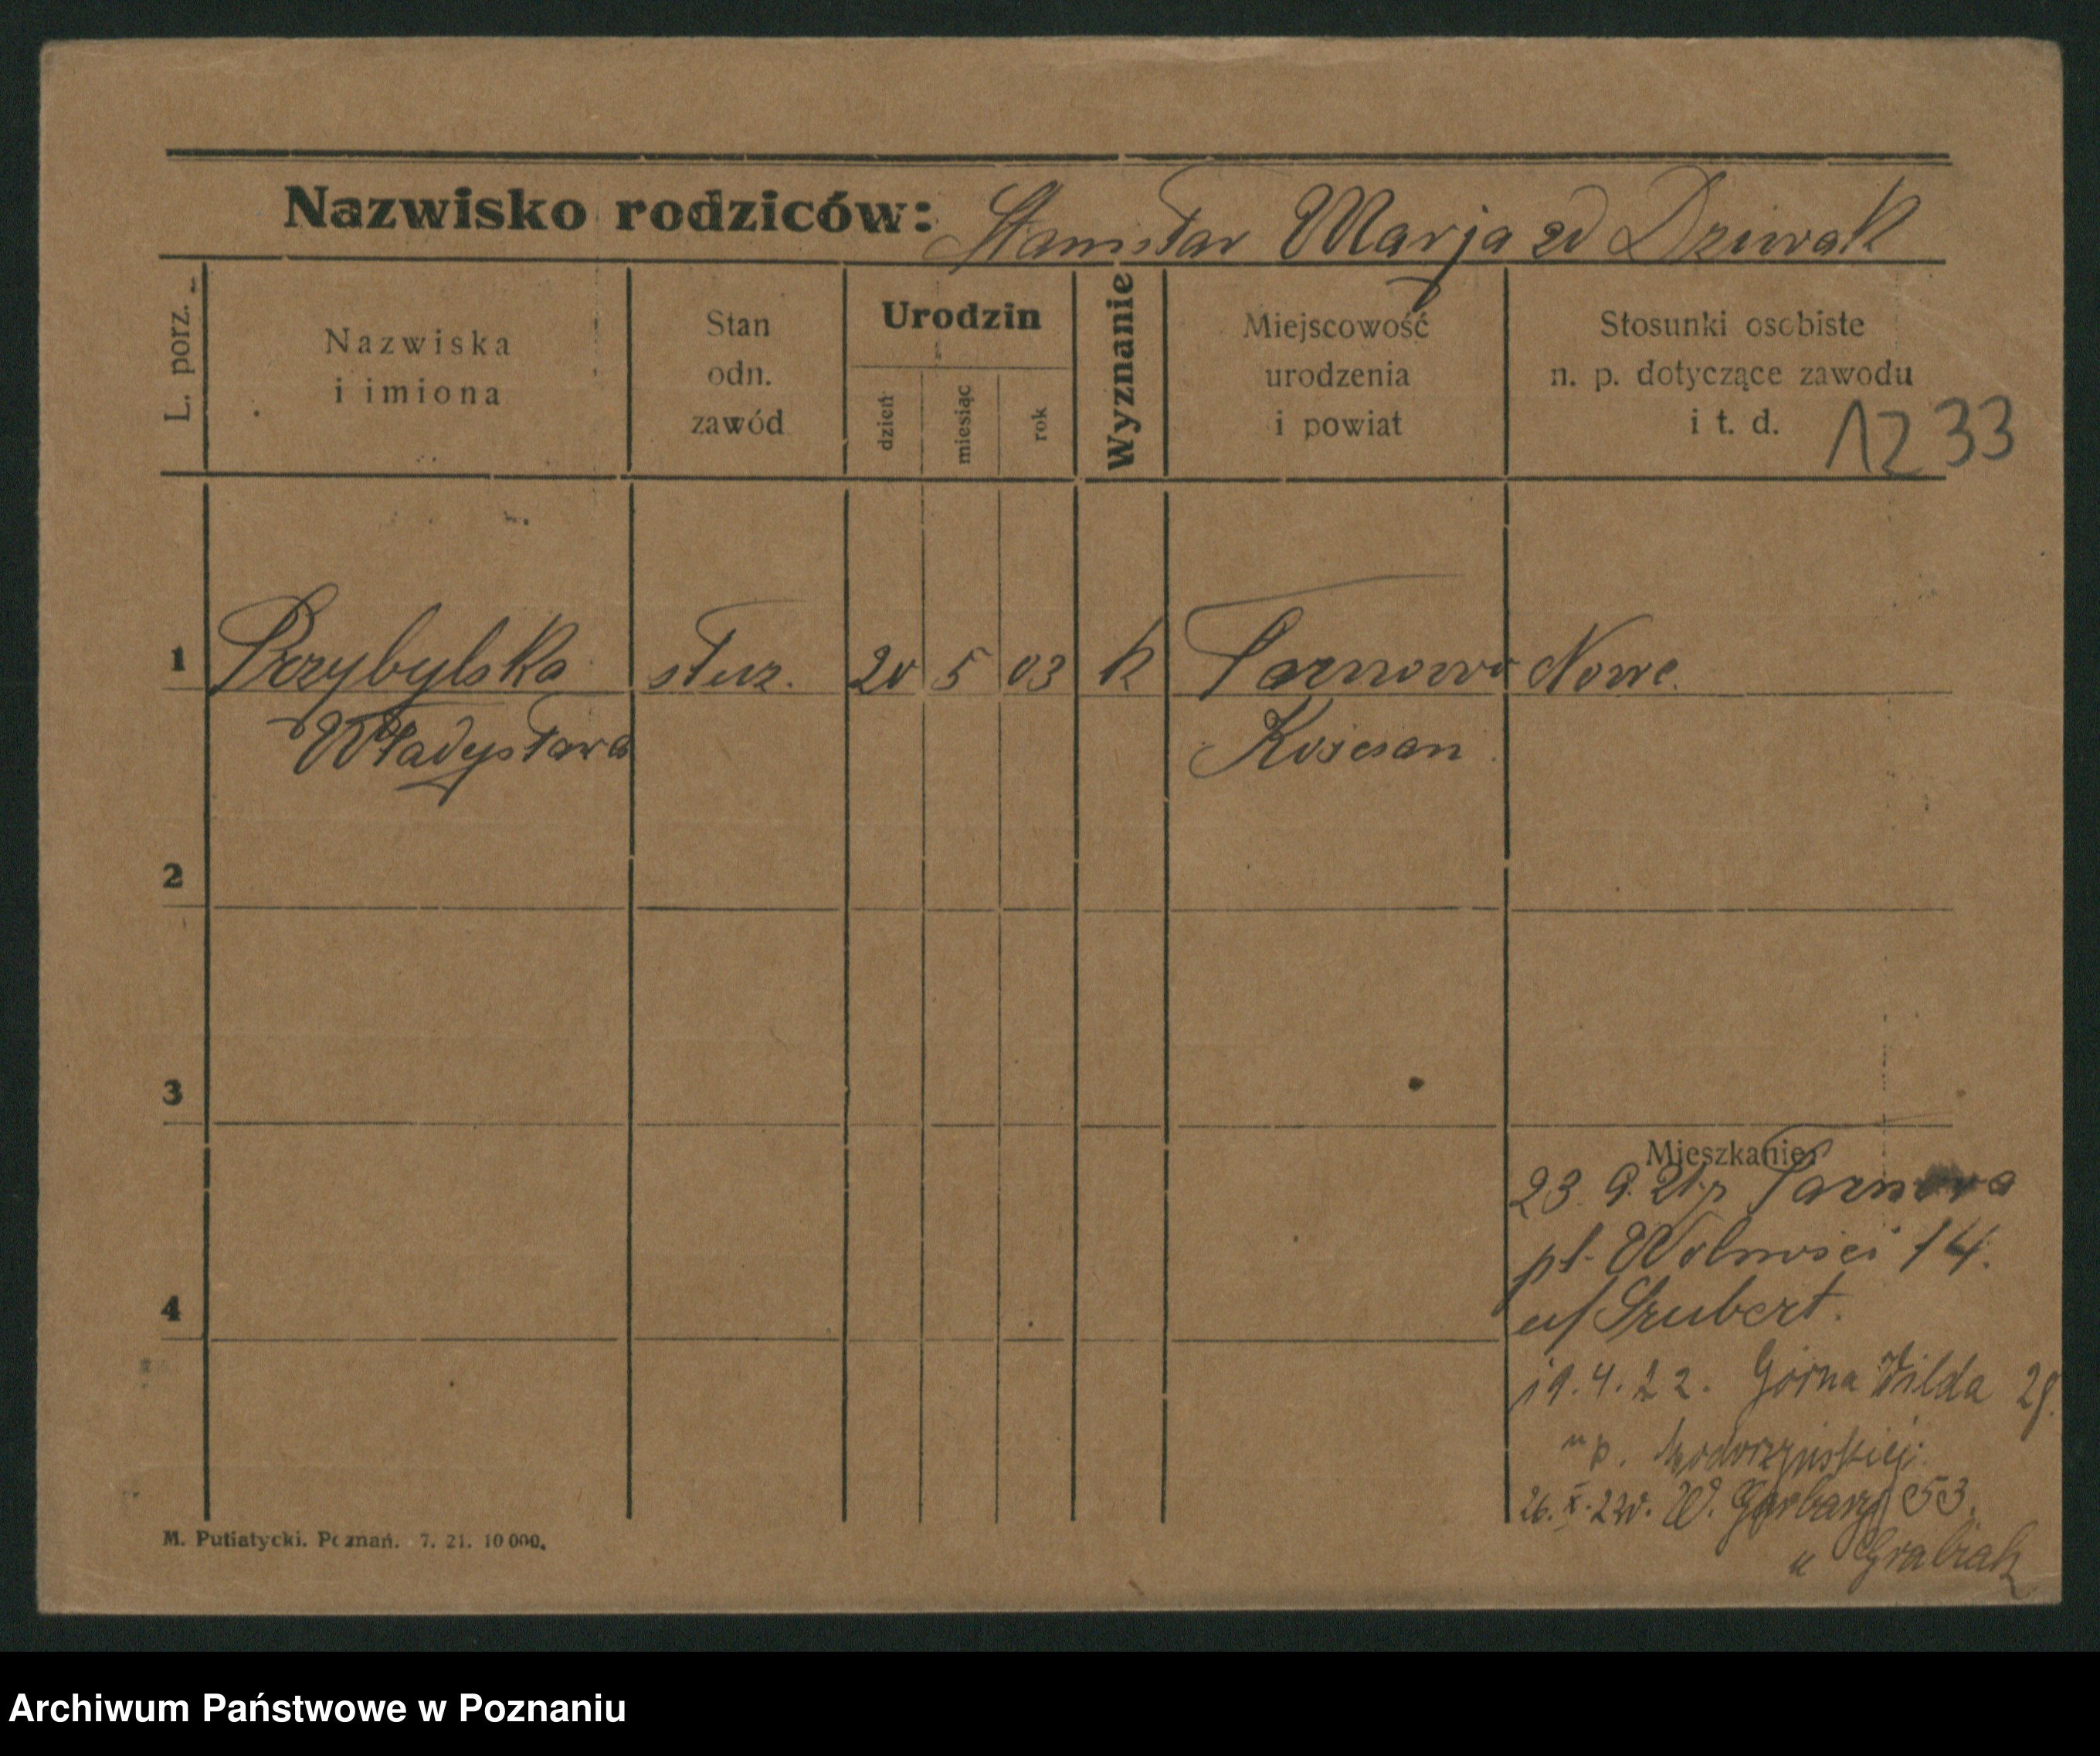 Nazwisko rodziców: Stanisław Marja zd Dziwak
L. porz.
Nazwiska
i imiona
Stan
odn.
zawód
Urodzin
dzień
miesiąc
rok
Wyznanie
Miejscowość
urodzenia
i powiat
Stosunki osobiste
n. p. dotyczące zawodu
i t. d.
1233
1 Przybylska służ. 20 5 03 k Tarnowo Nowe
Władysława Kościan
2
3
Mieszkanie:
23. 9. 21 p Tarnowo
pl. Wolności 14.
4
u/ Szubert.
19. 4. 22. Górna Wilda 29.
u p.
26. X. 22 W. Garbary 53.
u Grabiak
M. Putiatycki. Poznań. 7. 21. 10 000.
Archiwum Państwowe w Poznaniu